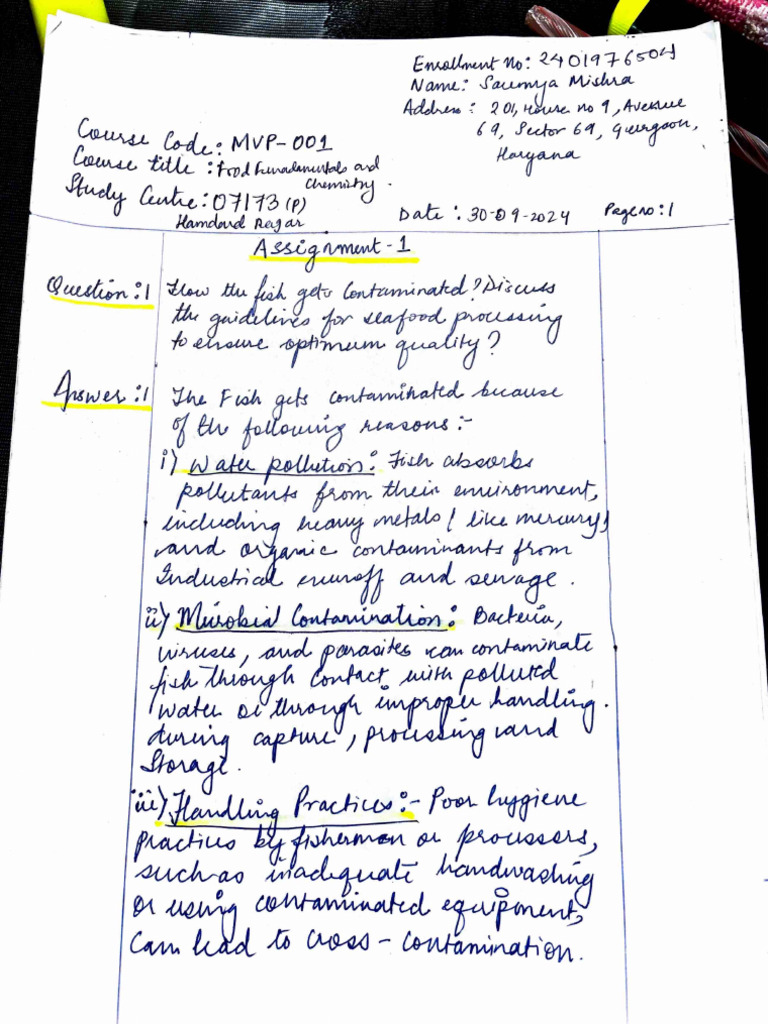 Enrollment No: 2401976504
Name: Saumya Mishra
Address: 201, House no 9, Avenue
69, Sector 69, Gurgaon,
Haryana
Course Code: MVP-001
Course title: Food Fundamentals and
Chemistry.
Study Centre: 07173 (P)
Hamdard Nagar
Date: 30-09-2024
Page no: 1
Assignment-1
Question:1 How the fish gets contaminated? Discuss
the guidelines for seafood processing
to ensure optimum quality?
Answer:1 The Fish gets contaminated because
of the following reasons:-
i) Water pollution: Fish absorbs
pollutants from their environment,
including heavy metals (like mercury)
and organic contaminants from
Industrial runoff and sewage.
ii) Microbial Contamination: Bacteria,
viruses, and parasites can contaminate
fish through contact with polluted
water or through improper handling.
during capture, processing and
Storage.
iii) Handling Practices:- Poor hygiene
practices by fishermen or processers,
such as inadequate handwashing
or using contaminated equipment,
Can lead to cross-contamination.